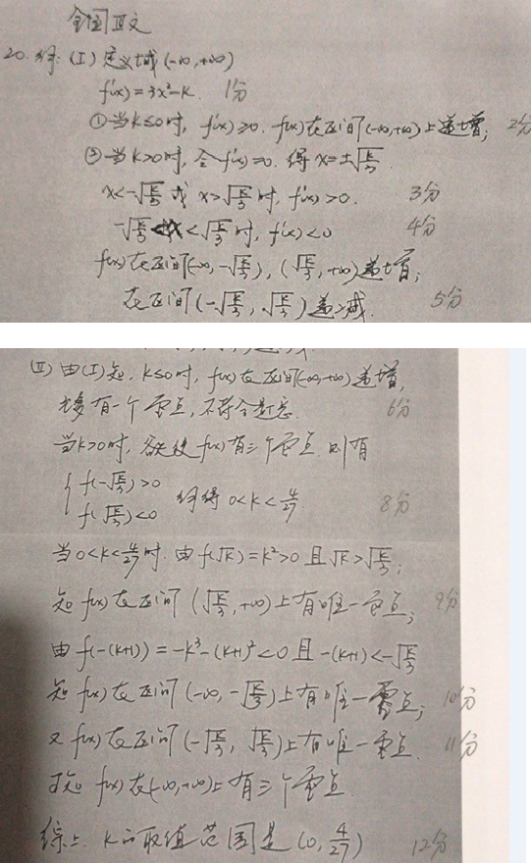 全国Ⅲ文
20. 解: (I) 定义域(-∞,+∞)
f'(x)=3x²-k. 1分
①当k≤0时, f'(x)≥0. f(x)在区间(-∞,+∞)上递增; 2分
②当k>0时, 令f'(x)=0. 得x=±√(k/3)
x<-√(k/3) 或 x>√(k/3)时, f'(x)>0. 3分
-√(k/3)<x<√(k/3)时, f'(x)<0 4分
f(x)在区间(-∞,-√(k/3)), (√(k/3),+∞)递增;
在区间(-√(k/3),√(k/3))递减. 5分
(Ⅱ) 由(I)知, k≤0时, f(x)在区间(-∞,+∞)递增,
有一个零点, 不符合题意. 6分
当k>0时, 欲使f(x)有三个零点. 则有
{f(-√(k/3))>0
f(√(k/3))<0 解得 0<k<4/27 8分
当0<k<4/27时. 由f(√k)=k²>0且√k>√(k/3);
知f(x)在区间(√(k/3),+∞)上有唯一零点; 9分
由f(-(k+1))=-k³-(k+1)²<0且-(k+1)<-√(k/3)
知f(x)在区间(-∞,-√(k/3))上有唯一零点; 10分
又f(x)在区间(-√(k/3),√(k/3))上有唯一零点. 11分
知f(x)在(-∞,+∞)上有三个零点.
综上. k的取值范围是(0,4/27) 12分